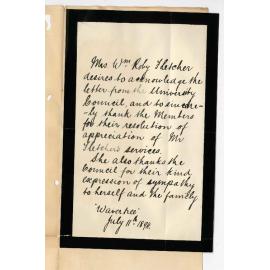 Mrs Wm Roby Fletcher
desires to acknowledge the
letter from the University
Council, and to sincere-
-ly thank the Members
for their resolution of
appreciation of Mr
Fletcher's services.
She also thanks the
Council for their kind
expression of sympathy
to herself and the family
"Wavertree"
July 11th 1894.